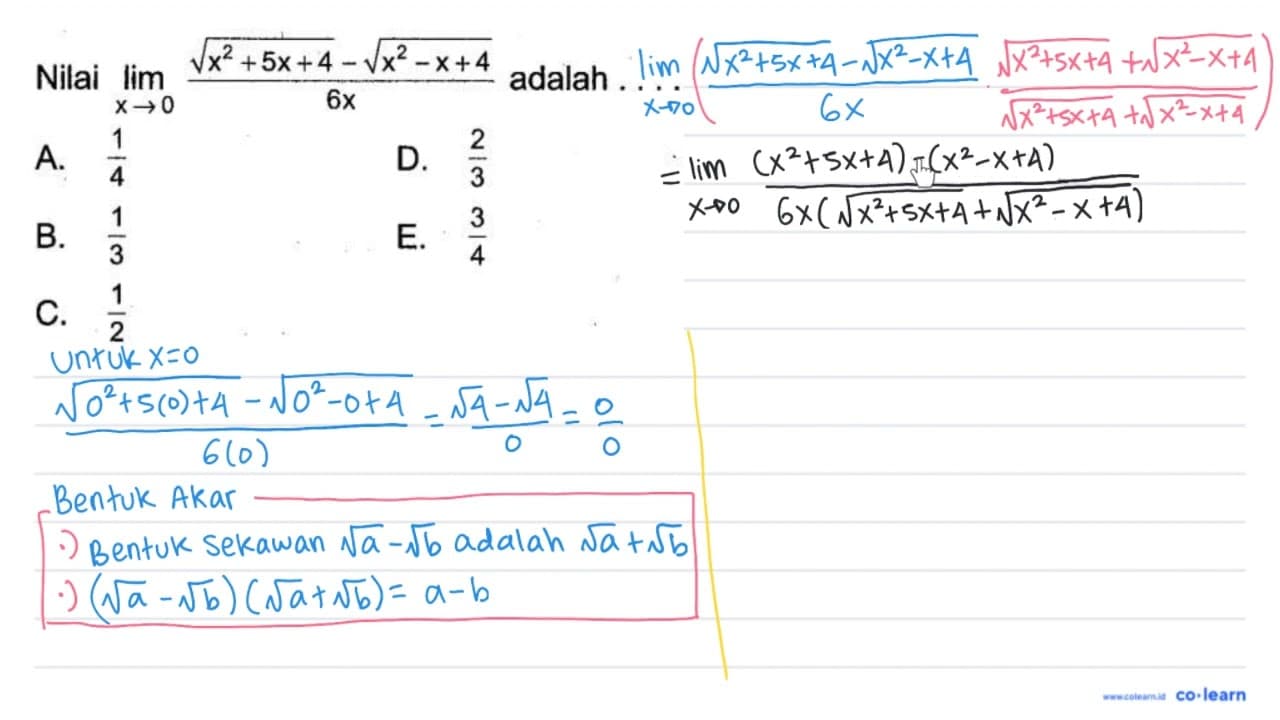 Nilai lim x→0 (√(x² + 5x + 4) − √(x² − x + 4)) / 6x adalah . . . .
A. 1/4
B. 1/3
C. 1/2
D. 2/3
E. 3/4
untuk x=0
(√(0²+5(0)+4) − √(0²−0+4)) / 6(0) = (√4−√4) / 0 = 0/0
Bentuk Akar
·) Bentuk sekawan √a−√b adalah √a+√b
·) (√a −√b)(√a+√b)= a−b
lim x→0 ( (√(x²+5x+4)−√(x²−x+4)) / 6x · (√(x²+5x+4) +√(x²−x+4)) / (√(x²+5x+4) +√(x²−x+4)) )
= lim x→0 ((x²+5x+4) − (x²−x+4)) / (6x(√(x²+5x+4)+√(x²−x+4)))
www.colearn.id co·learn